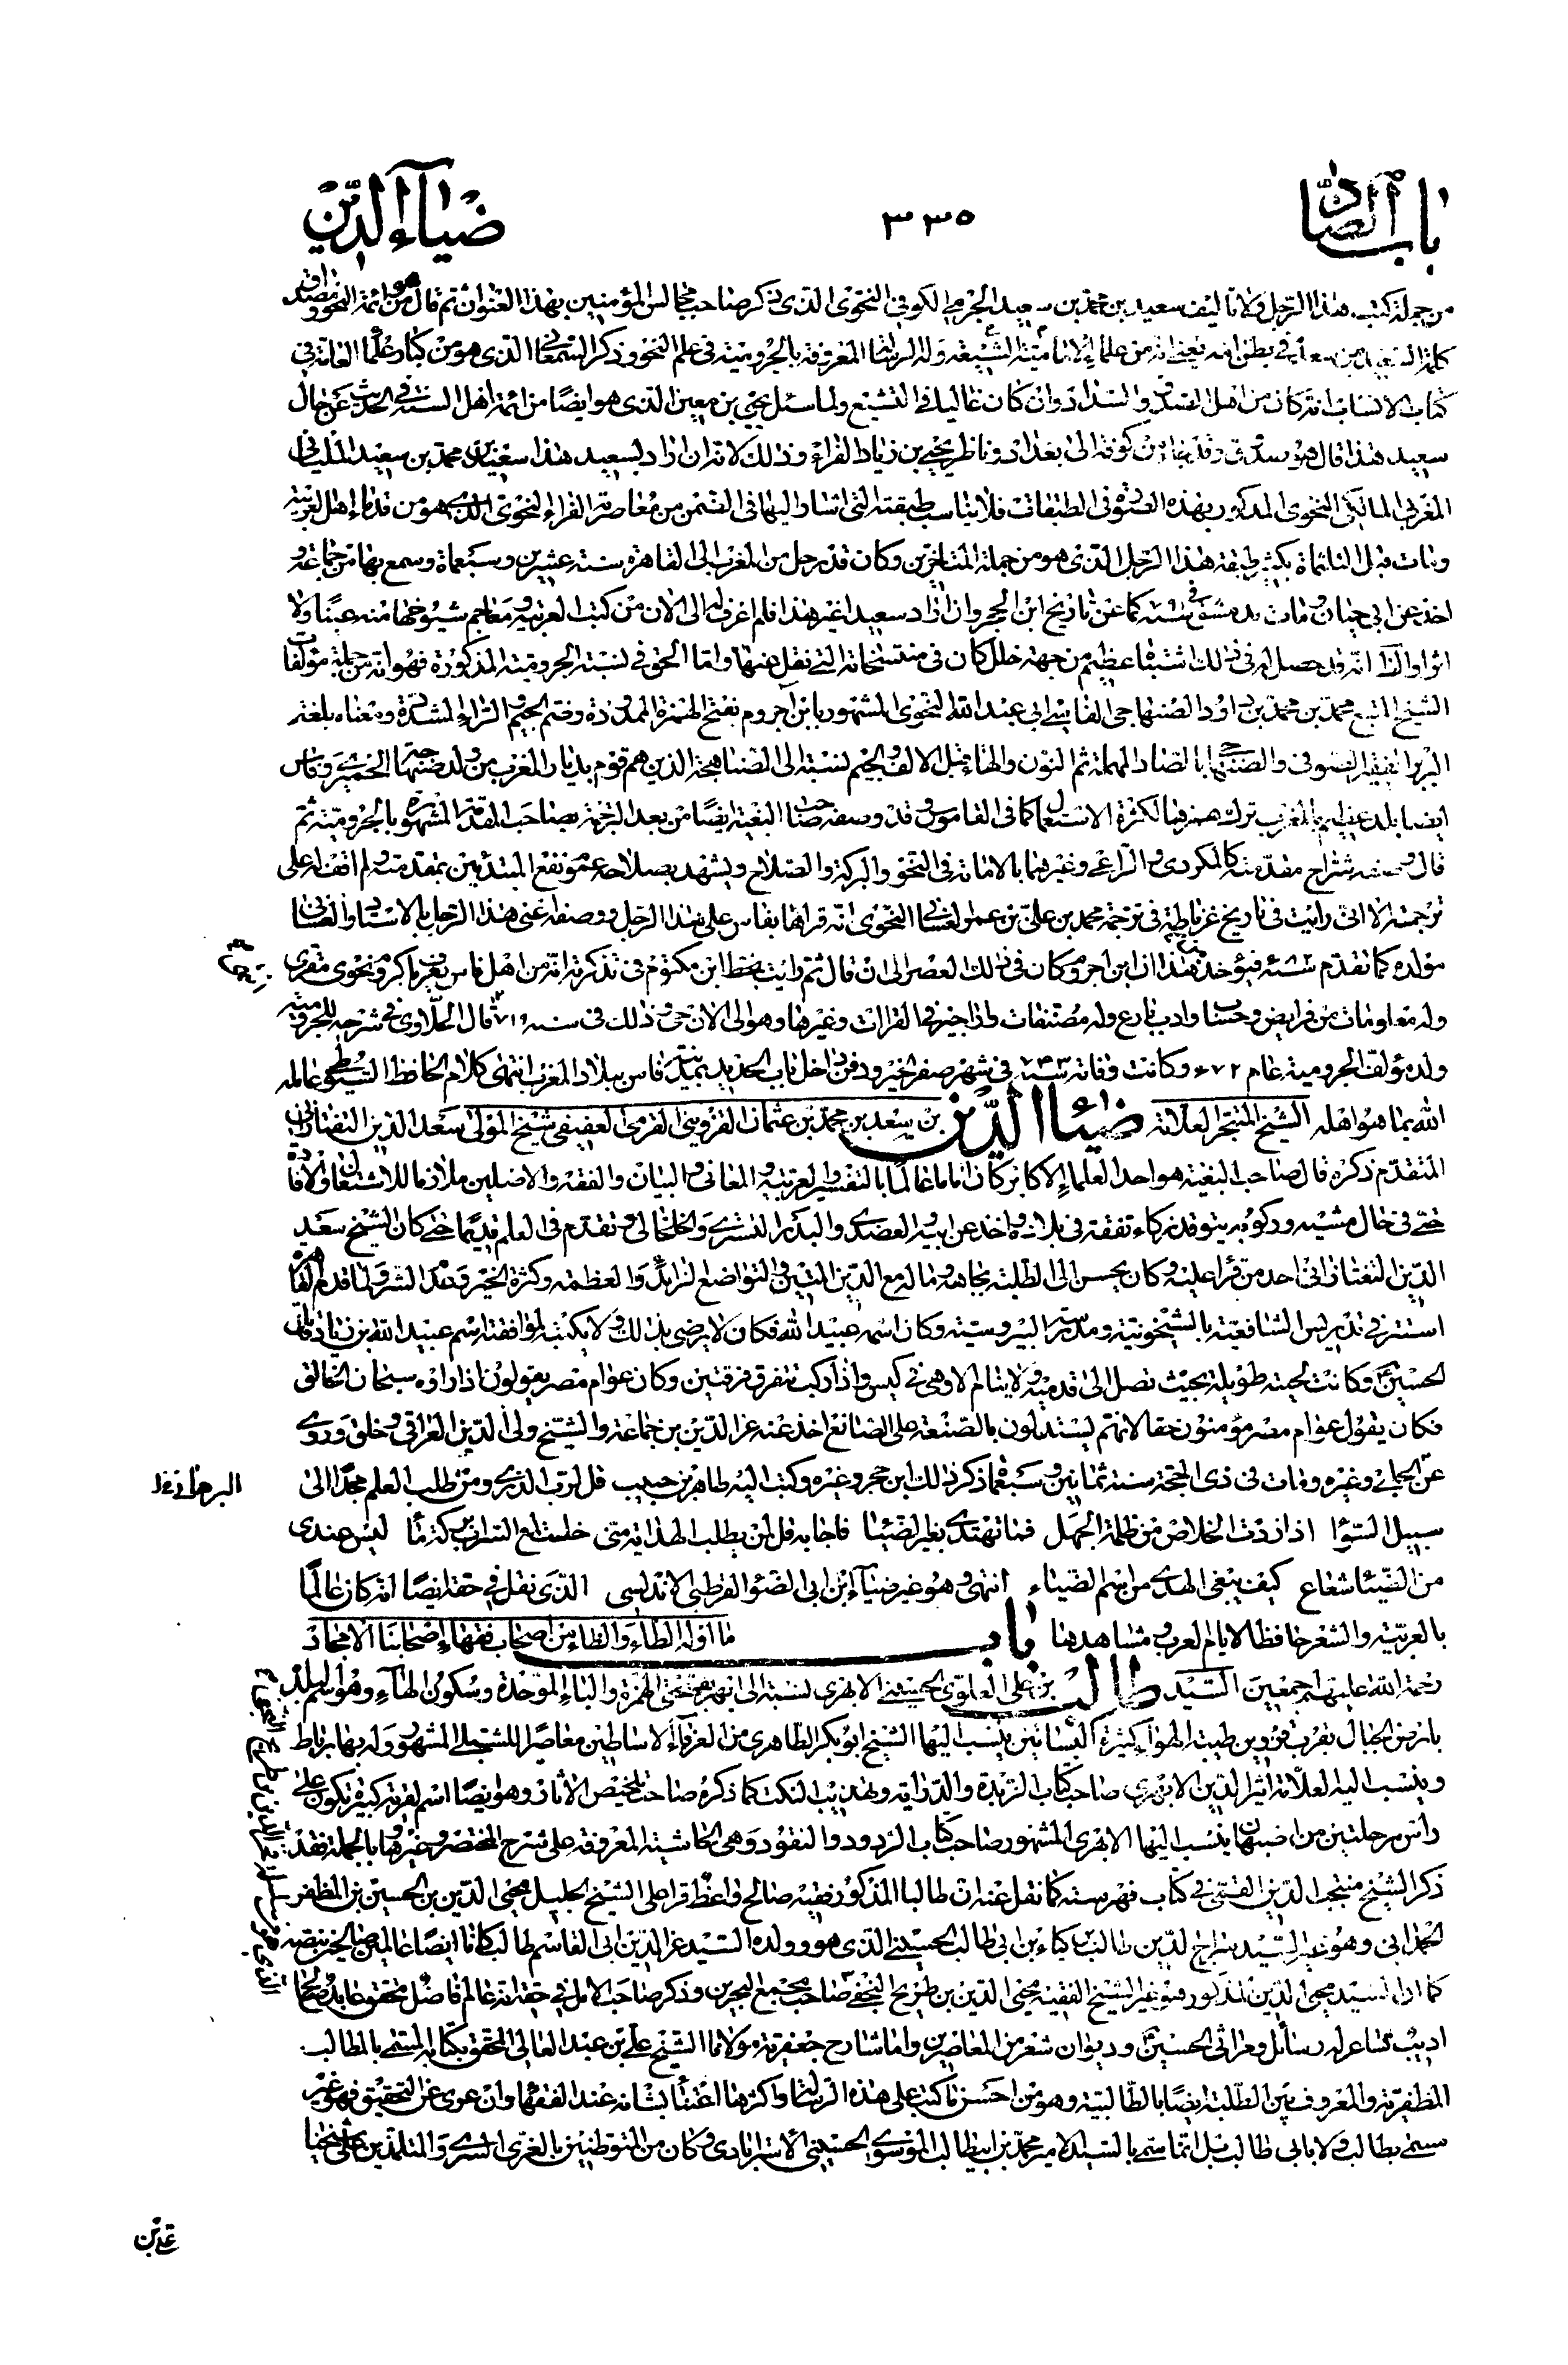 باب الصاد
٣٣٥
ضياء الدين
من جملة كتب هذا الرجل ولا تاليف سعيد بن محمد بن سعيد الجرمي الكوفي النحوي الذي ذكر صاحب مجالس المؤمنين بهذا العنوان ثم قال هو من ائمة النحو ومصداق
كلمة السعيد من سعد في بطن امه يعني انه من علماء الامامية الشيعة وله الرسالة المعروفة بالجرومية في علم النحو وذكر السمعاني الذي هو من كبار علماء العامة في
كتاب الانساب انه كان من اهل الصدق والسداد وان كان غاليا في التشيع ولما سئل يحيى بن معين الذي هو ايضا من ائمة اهل السنة في الحديث عن حال
سعيد هذا قال هو صدوق وقد جاء من كوفة الى بغداد وناظر يحيى بن زياد الفراء وذلك لانه ان اراد بسعيد هذا سعيد بن محمد بن سعيد الملياني
المغربي المالكي النحوي المذكور بهذه الصفة في الطبقات فلا يناسب طبقته التي اشار اليها في الضمن من معاصرة الفراء النحوي الذي هو من قدماء اهل العربية
ومات قبل الثلثمائة بكثير طبقة هذا الرجل الذي هو من جملة المتاخرين وكان قد رحل من المغرب الى القاهرة سنة عشرين وسبعماة وسمع بها من جماعة و
اخذ عن ابي حيان ومات بدمشق في سنة كما عن تاريخ ابن الحجر وان اراد سعيدا غير هذا فلم اعرف له الى الان من كتب العربية ومعاجم شيوخها منه عينا ولا
اثرا والا انه قد حصل له في ذلك اشتباه عظيم من جهة خلل كان في منتسخاته التي نقل عنها واما الحق في نسبة الجرومية المذكورة فهو انه من جملة مؤلفات
الشيخ المتبع محمد بن محمد بن داود الصنهاجي الفاسي ابي عبد الله النحوي المشهور بابن اجروم بفتح الهمزة الممدودة وضم الجيم والراء المشددة ومعناه بلغة
البربر الفقير الصوفي والصنهاجي بالصاد المهملة ثم النون والهاء قبل الالف والجيم نسبة الى الصنهاجة الذين هم قوم بديار المغرب من ولد صنهاجة الحميري وفاس
ايضا بلد عظيم بالمغرب ترك همزها لكثرة الاستعمال كما في القاموس وقد وصفه صاحب البغية ايضا من بعد الترجمة بصاحب المقدمة المشهورة بالجرومية ثم
قال وصفه شراح مقدمته كالمكودي والراعي وغيرهما بالامامة في النحو والبركة والصلاح ويشهد بصلاحه عموم نفع المبتدئين بمقدمته ولم اقف له على
ترجمة الا اني رايت في تاريخ غرناطة في ترجمة محمد بن علي بن عمر الغساني النحوي انه قرا هنا بفاس على هذا الرجل ووصفه اعني هذا الرجل بالاستاد والغساني
مولده كما تقدم سنة فيؤخذ من هذا ان ابن اجروم كان في ذلك العصر الى ان قال ثم رايت بخط ابن مكتوم في تذكرته انه من اهل فاس يعرف باكروم نحوي مقري
وله معلومات من فرايض وحساب وادب بارع وله مصنفات واراجيز في القرات وغيرها وهو الى الان حي وذلك في سنة ٧١٩ قال الحلاوي في شرحه للجرومية
ولد مؤلف الجرومية عام ٦٧٢ وكانت وفاته سنة ٧٢٣ في شهر صفر الخير ودفن داخل باب الحديد بمدينة فاس ببلاد المغرب انتهى كلام الحافظ السيوطي عامله
الله بما هو اهله الشيخ المتبحر العلامة ضياء الدين بن سعد بن محمد بن عثمان القزويني القرمي العفيفي شيخ المولى سعد الدين التفتازاني
المتقدم ذكره قال صاحب البغية هو احد العلماء الاكابر كان اماما عالما بالتفسير والعربية والمعاني والبيان والفقه والاصلين ملازما للاشتغال والافادة
حتى في حال مشيه وركوبه يتوقد ذكاء تفقه في بلاده واخذ عن ابيه والعضدي والبدر التستري والخلخالي وتقدم في العلم قديما حتى كان الشيخ سعد
الدين التفتازاني احد من قرا عليه وكان يحسن الى الطلبة بجاهه وماله مع الدين المتين والتواضع الزايد والعظمة وكثرة الخير وعدم الشر ولما قدم القاهرة
استقر في تدريس الشافعية بالشيخونية ومدرسة البيبرسية وكان اسمه عبيد الله فكان لا يرضى بذلك ولا يكتبه لموافقته اسم عبيد الله بن زياد قاتل
الحسين وكانت لحيته طويلة بحيث تصل الى قدميه ولا ينام الا وهي في كيس واذا ركب تتفرق فرقتين وكان عوام مصر يقولون اذا راوه سبحان الخالق
فكان يقول عوام مصر مؤمنون حقا لانهم يستدلون بالصنعة على الصانع اخذ عنه عز الدين بن جماعة والشيخ ولي الدين العراقي وخلق وروى
عن الحجار وغيره ومات في ذي الحجة سنة ثمانين وسبعماة ذكر ذلك ابن حجر وغيره وكتب اليه طاهر بن حبيب قل لرب الندى ومن طلب العلم مجدا الى
سبيل السوا اذا اردت الخلاص من ظلمة الجهل فما تهتدي بغير الضيا فاجابه قل لمن يطلب الهداية مني خلت لمع السراب بركة ما ليس عندي
من الضياء شعاع كيف يبغى الهدى من اسم الضياء انتهى وهو غير ضياء ابن ابي الضوء القرطبي الاندلسي الذي نقل في حقه ايضا انه كان عالما
بالعربية والشعر حافظا لايام العرب ومشاهدها باب ما اوله الطاء والظاء من اصحاب فقهاء اصحابنا الامجاد
رحمة الله عليهم اجمعين السيد طالب بن علي العلوي الحسيني الابهري نسبة الى ابهر بفتحتي الهمزة والباء الموحدة وسكون الهاء وهو اسم بلد
بارض الجبال بقرب قزوين طيب الهواء كثيرة البساتين ينسب اليها الشيخ ابو بكر الطاهري من العرفاء الاساطين معاصرا للشبلي المشهور وله بها رباط
وينسب اليه العلامة اثير الدين الابهري صاحب كتاب الزبدة والدراية وتهذيب النكت كما ذكره صاحب تلخيص الاثار وهو ايضا اسم لقرية كبيرة تكون على
راس مرحلتين من اصبهان ينسب اليها الابهري المشهور صاحب كتاب الردود والنقود وهي الحاشية المعروفة على شرح المختصر وغيرها وبالجملة فقد
ذكر الشيخ منتجب الدين القمي في كتاب فهرسته كما نقل عنه ان طالبا المذكور فقيه صالح واعظ قرا على الشيخ الجليل محيي الدين بن الحسين بن المظفر
الحمداني وهو غير السيد سراج الدين طالب كياء بن ابي طالب الحسيني الذي هو وولده السيد عز الدين ابي القاسم طالب كانا ايضا عالمين صالحين بنصه
كما ان السيد محيي الدين المذكور هو غير الشيخ الفقيه محيي الدين بن طريح النجفي صاحب مجمع البحرين وذكر صاحب الامل في حقه انه عالم فاضل محقق عابد صالح
اديب شاعر له رسائل ومراثي الحسين ع وديوان شعر من المعاصرين واما شارح جعفرية مولانا الشيخ علي بن عبد العالي المحقق بكتابه المسمى بالمطالب
المظفرية والمعروف بين الطلبة ايضا بالطالبية وهو من احسن ما كتب على هذه الرسالة واكثرها اعتناء بشانه عند الفقهاء وان عري عن التحقيق فهو غير
سمي بطالب ولا بابي طالب بل انما سمي بالسيد الامير محمد بن ابيطالب الموسوي الحسيني الاسترابادي وكان من المتوطنين بالغري السري والمتلمذين على شيخنا
علي بن